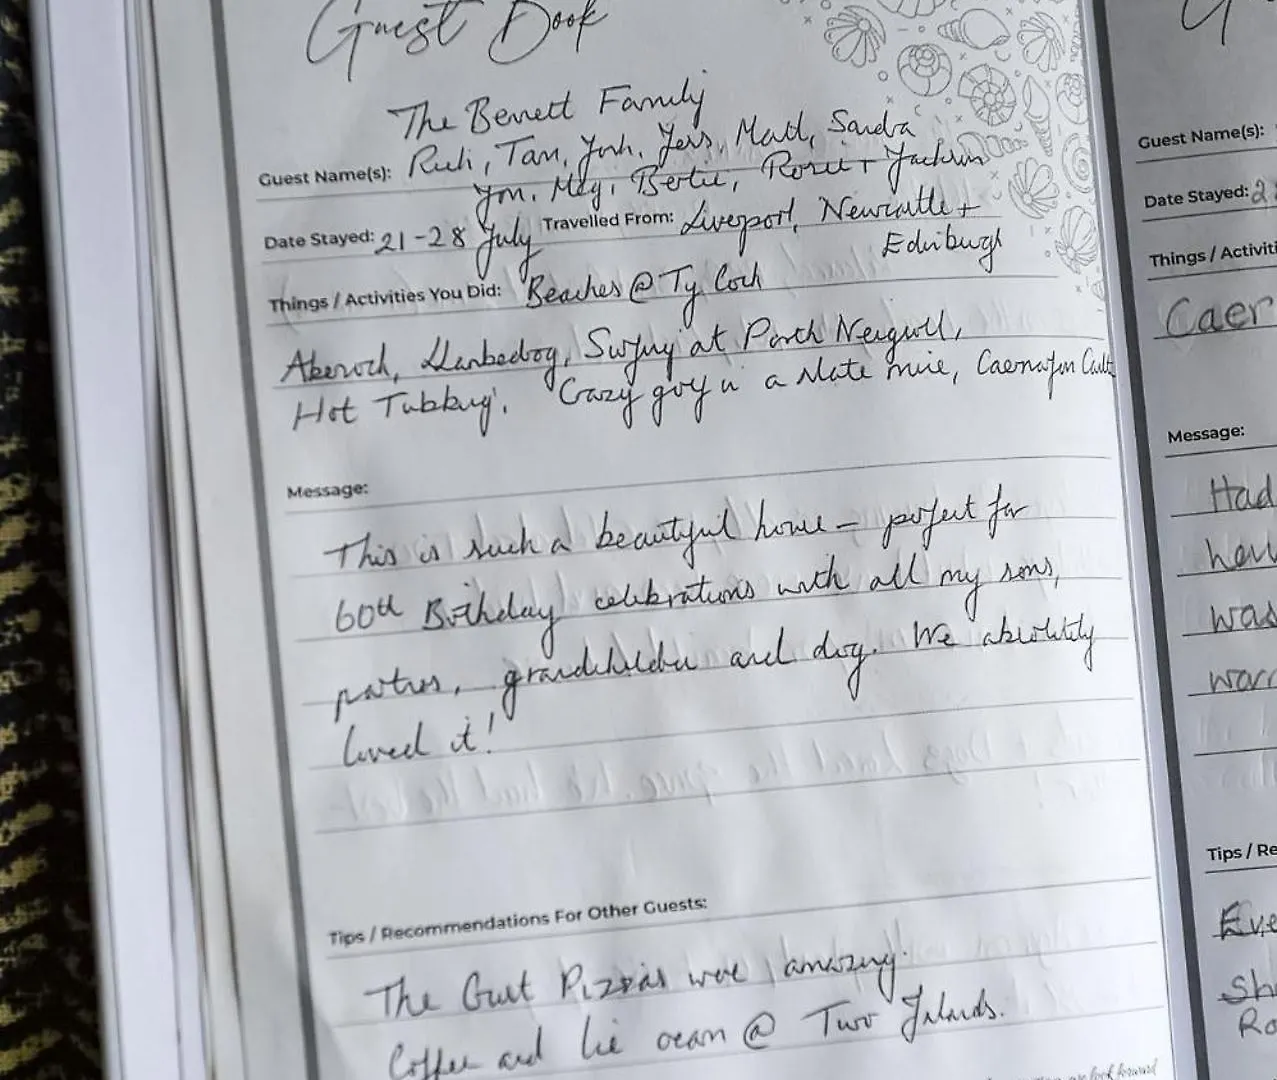 Guest Book
The Bennett Family
Guest Name(s): Tam, Josh, Jess, Matt, Sandra
Jon, Meg, Bertie, Rosie + Jackson
Date Stayed: 21-28 July Travelled From: Liverpool, Newcastle +
Edinburgh
Things / Activities You Did: Beaches @ Ty Coch
Abersoch, Llanbedrog, Surfing at Porth Neigwll,
Hot Tubbing. Crazy golf in a slate mine, Caernafon Castle
Message:
This is such a beautiful home – perfect for
60th Birthday celebrations with all my sons,
partners, grandchildren and dog. We absolutely
loved it!
Tips / Recommendations For Other Guests:
The Pizzas were amazing.
Coffee and Ice cream @ Two Islands.
look forward
G
Guest Name(s):
Date Stayed: 2
Things / Activiti
Caer
Message:
Had
was
Tips / Re
Eve
Sh
Ro